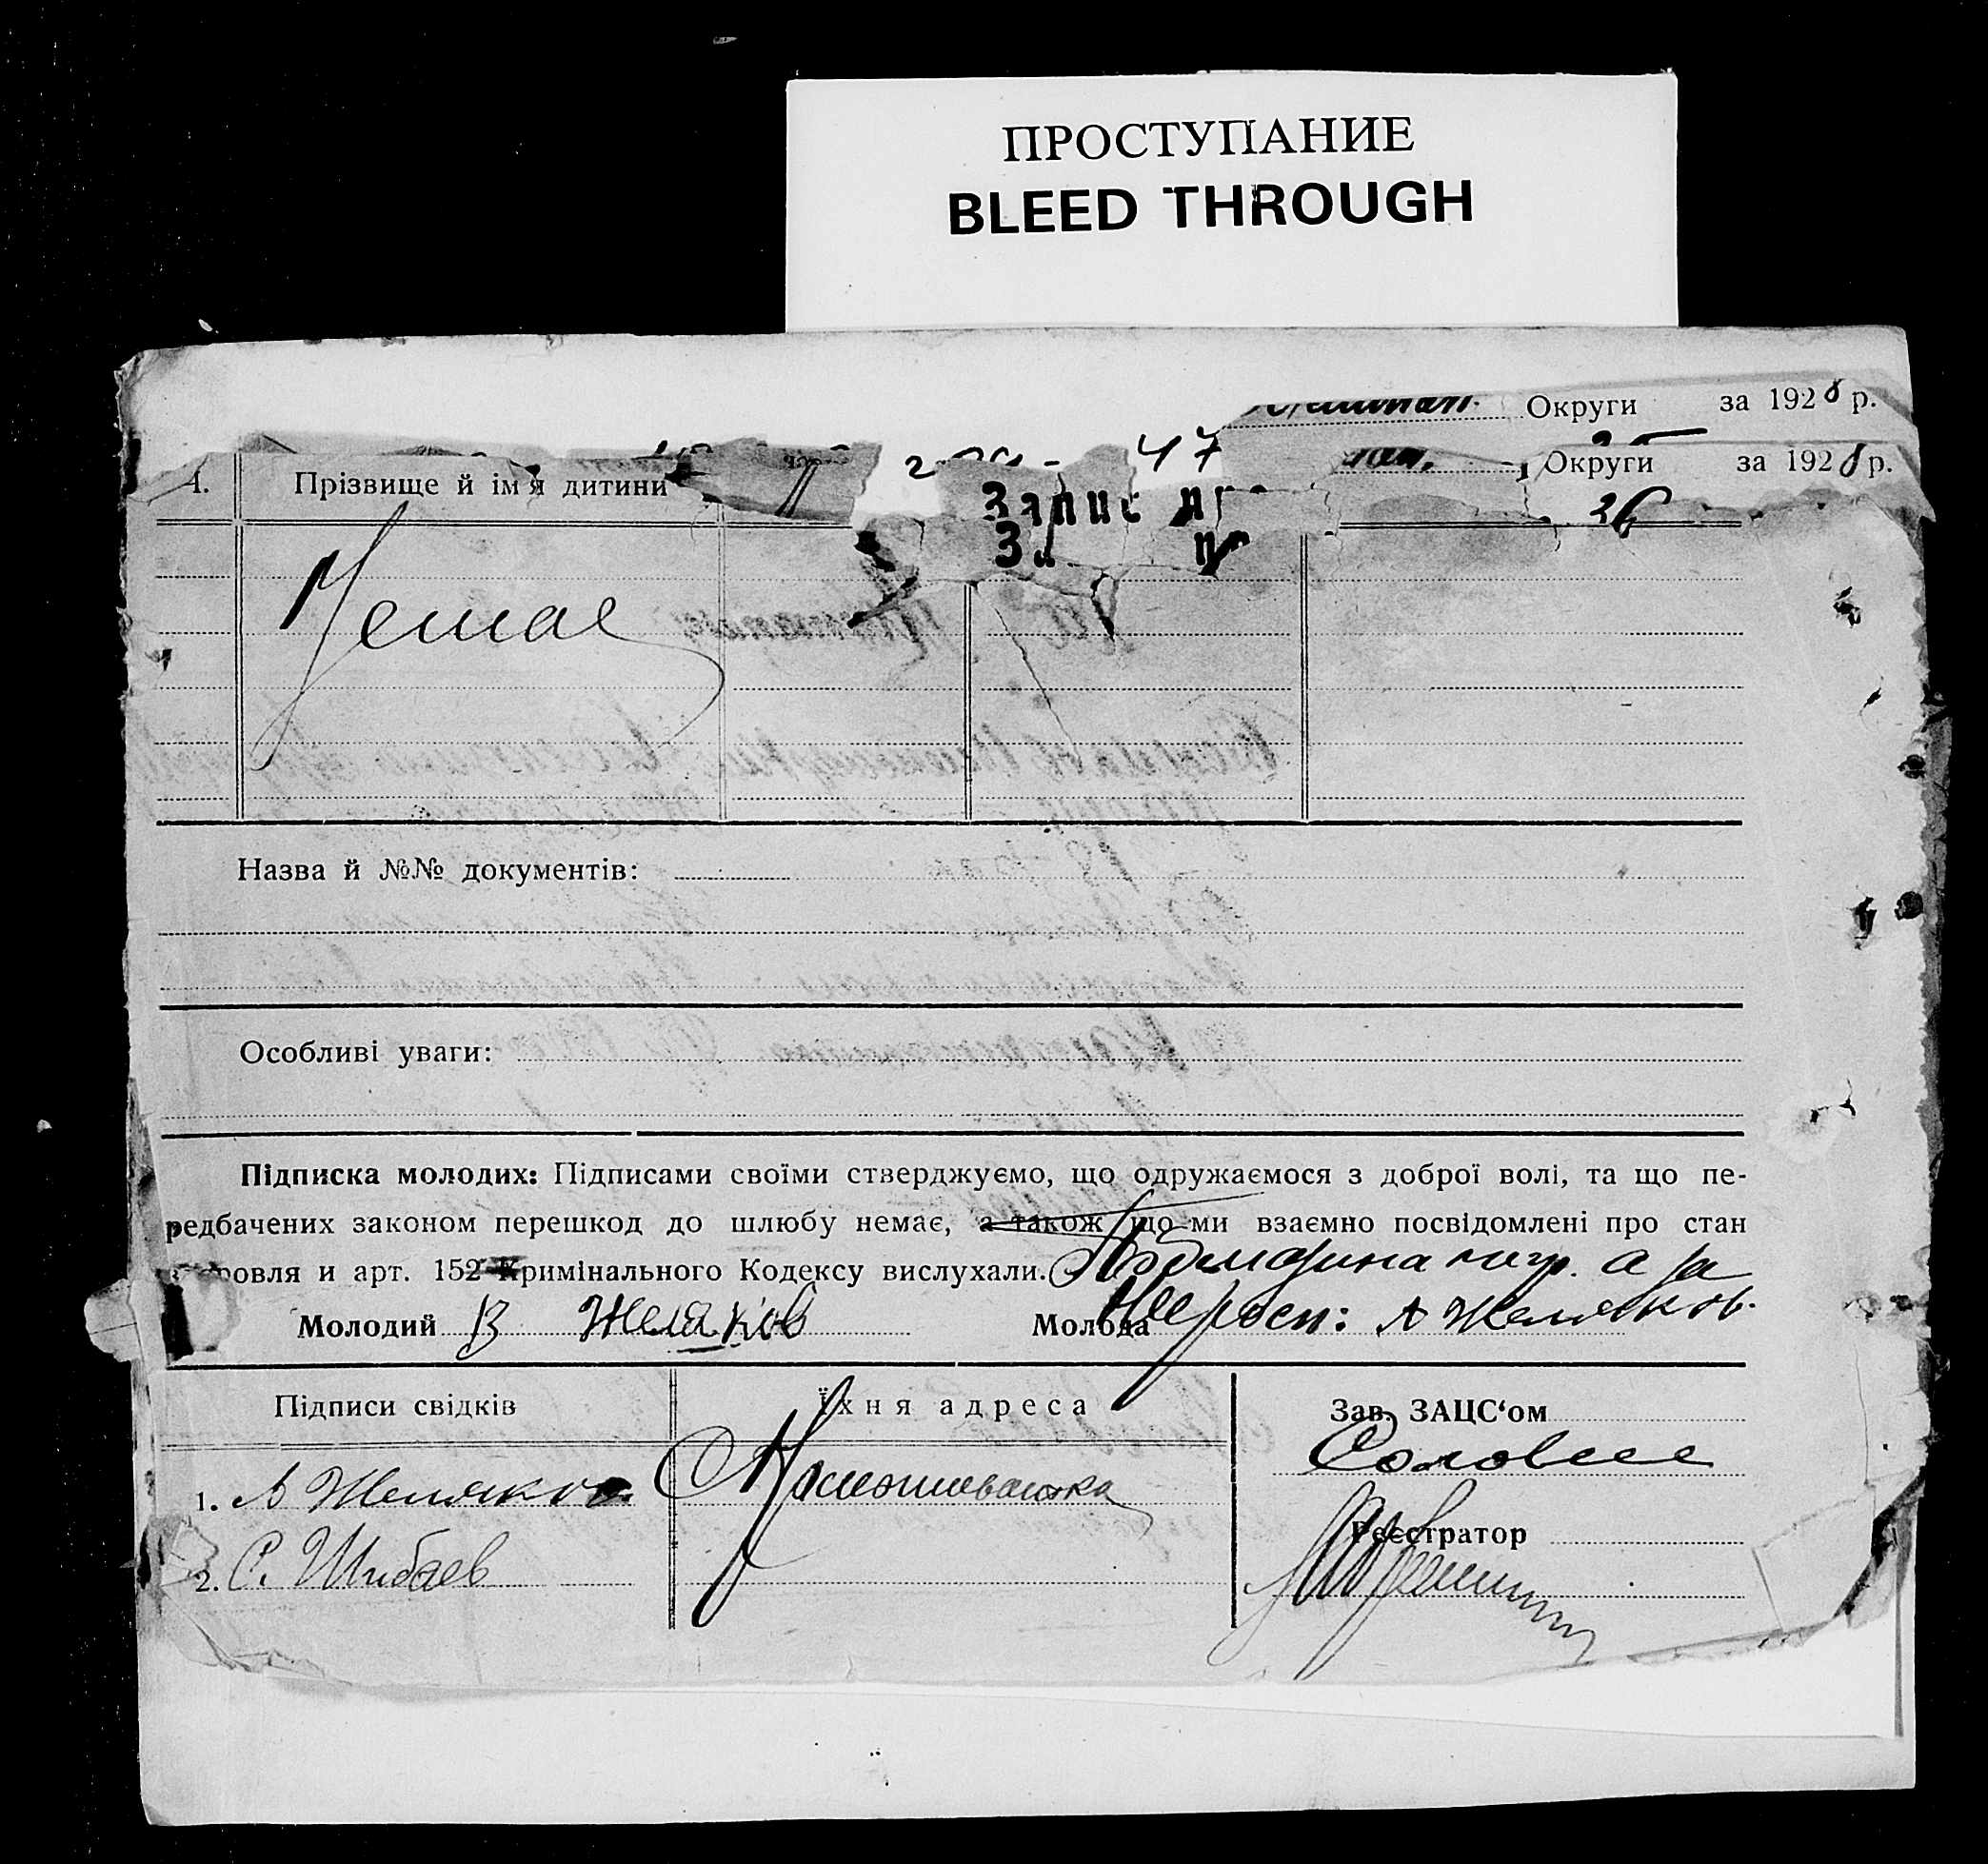 ПРОСТУПАНИЕ
BLEED THROUGH
Округи за 1928 р.
47
Округи за 1928 р.
1. Прізвище й ім'я дитини
Запис
За
36
Немає
Назва й №№ документів:
Особливі уваги:
Підписка молодих: Підписами своїми стверджуємо, що одружаємося з доброї волі, та що пе-
редбачених законом перешкод до шлюбу немає, а також що ми взаємно посвідомлені про стан
ровля и арт. 152 Кримінального Кодексу вислухали.
а за
Молодий В Желяков Молода нее росп: А Желяков
Підписи свідків Їхня адреса Зав. ЗАЦС'ом
1. А Желяков
Реєстратор
2. С. Шибаев